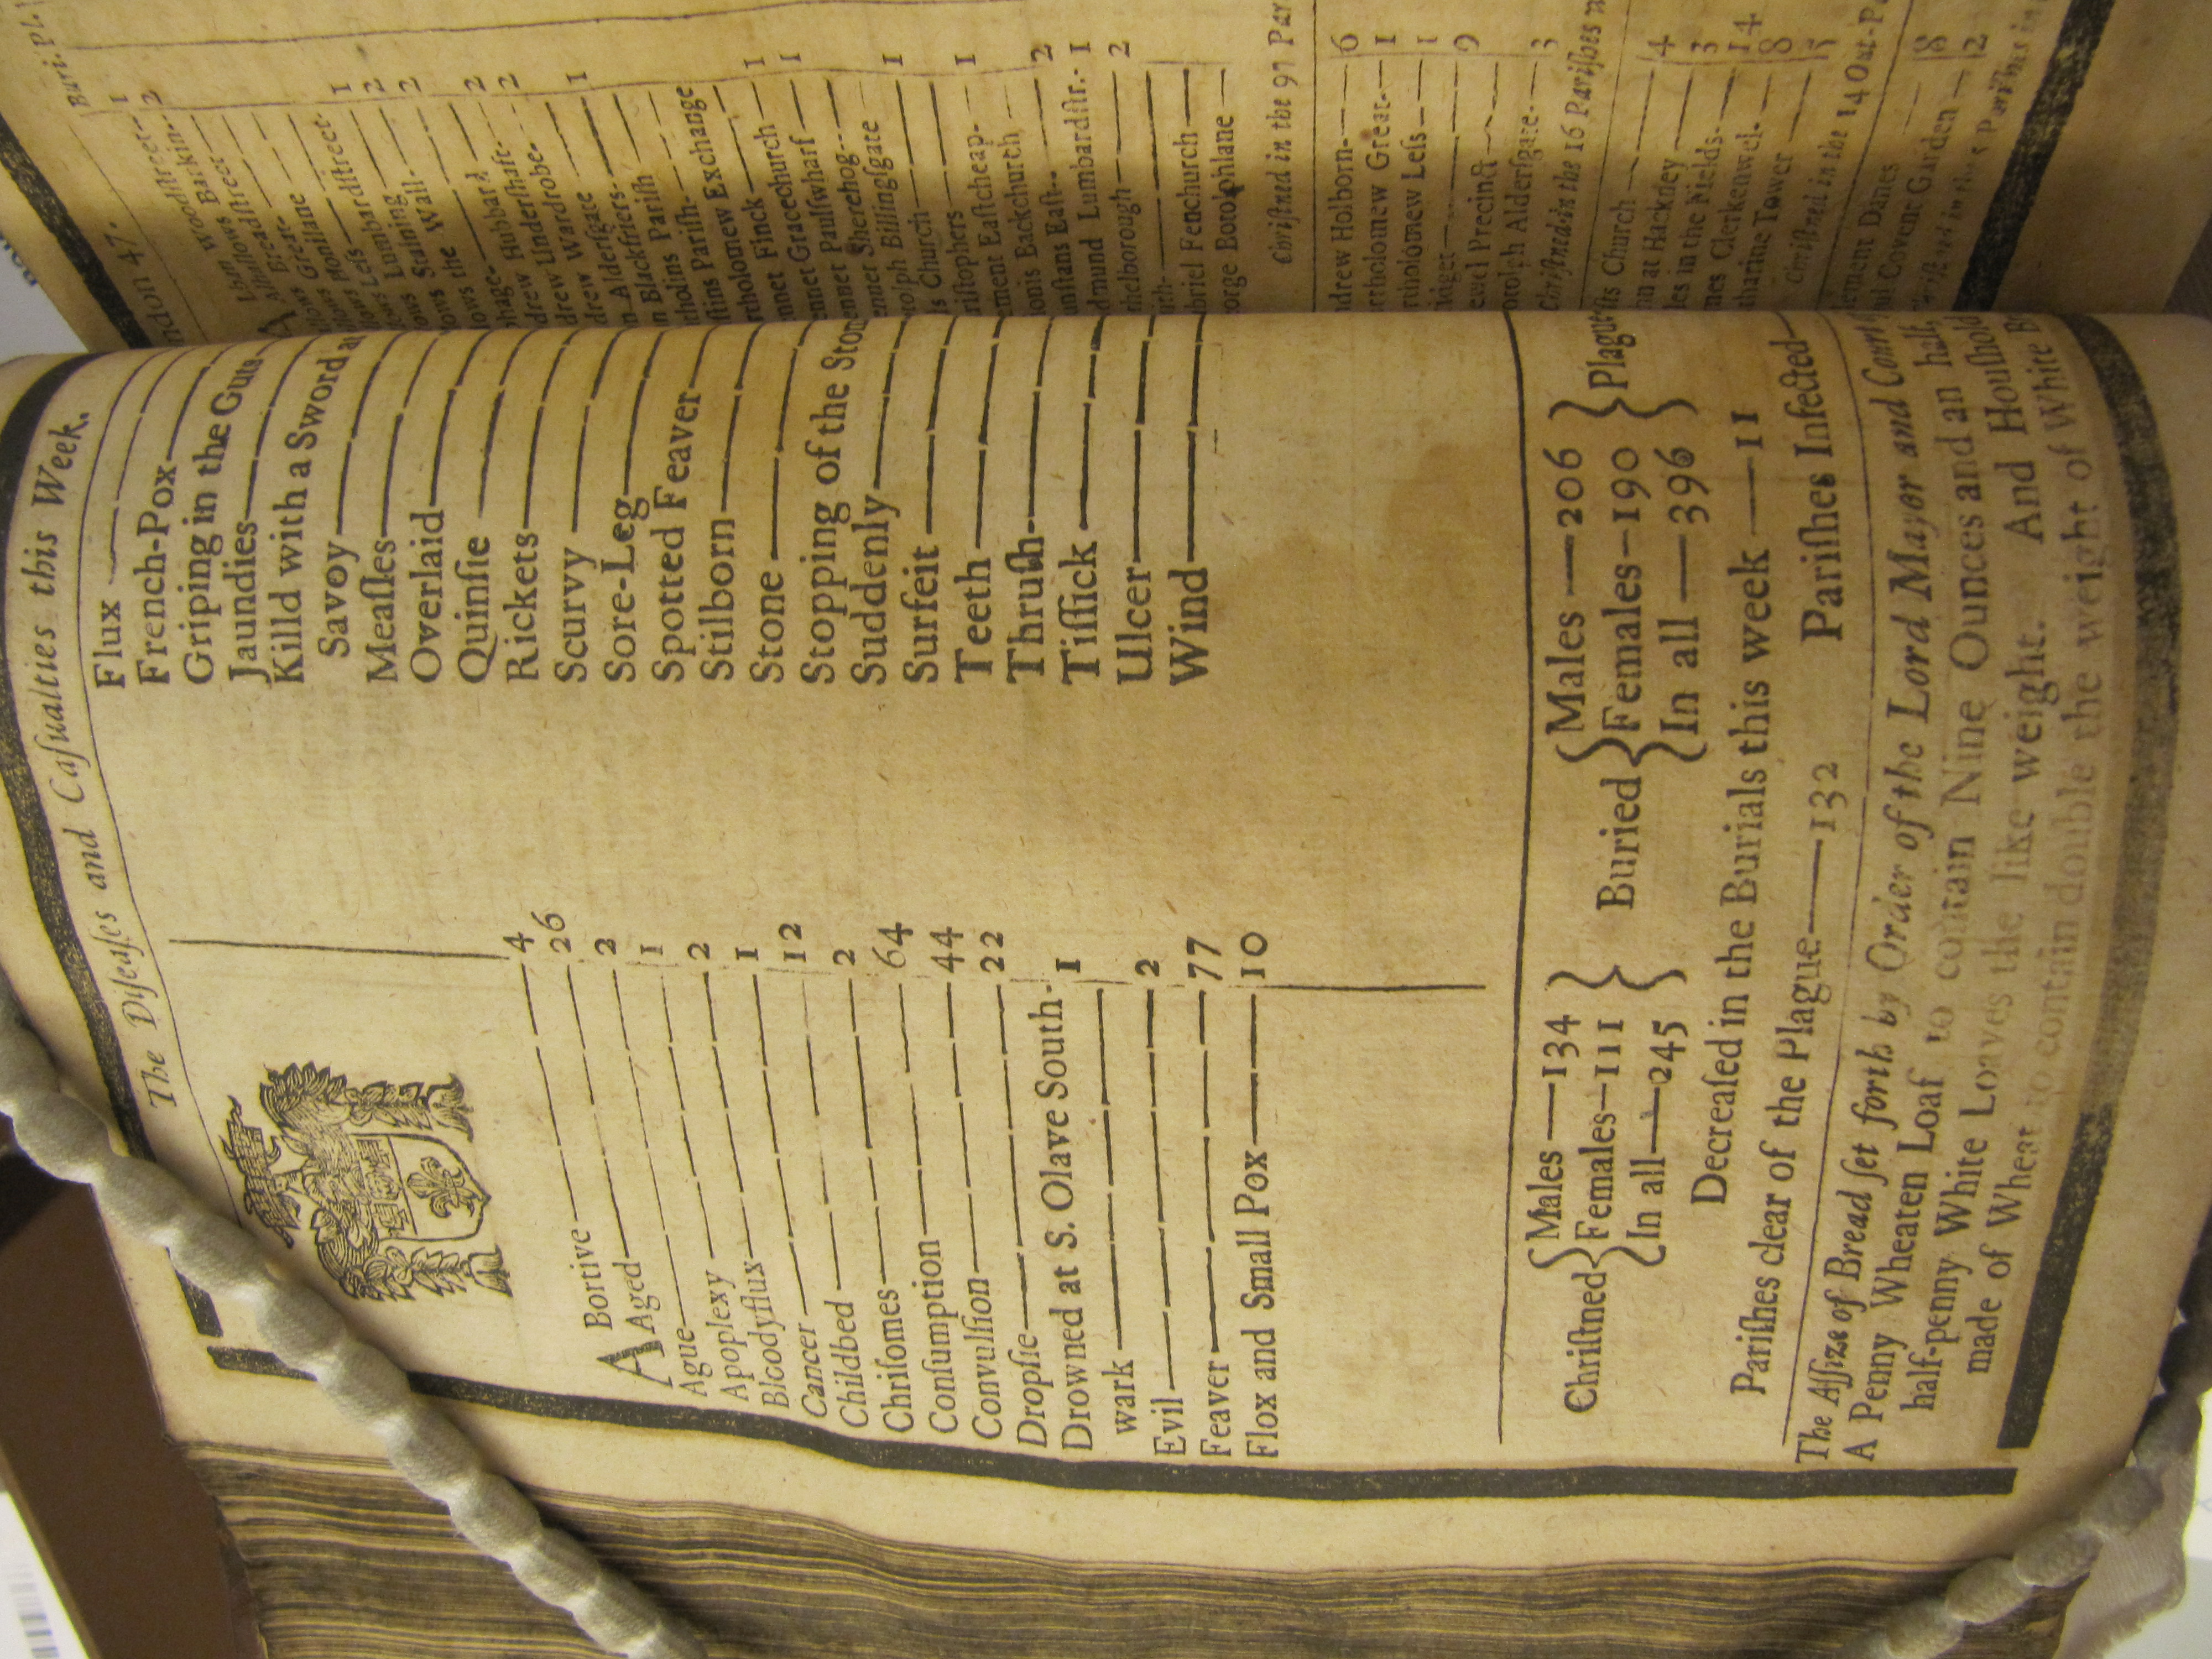 The Diſeaſes and Caſualties this Week.
ABortive — 4
Aged — 26
Ague — 2
Apoplexy — 1
Bloodyflux — 2
Cancer — 1
Childbed — 12
Chriſomes — 2
Conſumption — 64
Convulſion — 44
Dropſie — 22
Drowned at S. Olave South-
wark — 1
Evil — 2
Feaver — 77
Flox and Small Pox — 10
Flux
French-Pox
Griping in the Guts
Jaundies
Killd with a Sword at
Savoy
Meaſles
Overlaid
Quinſie
Rickets
Scurvy
Sore-Leg
Spotted Feaver
Stilborn
Stone
Stopping of the Stom
Suddenly
Surfeit
Teeth
Thruſh
Tiſſick
Ulcer
Wind
Chriſtned { Males — 134 Females — 111 In all — 245 } Buried { Males — 206 Females — 190 In all — 396 } Plague
Decreaſed in the Burials this week — 11
Pariſhes clear of the Plague — 132 Pariſhes Infected
The Aſſize of Bread ſet forth by Order of the Lord Mayor and Court
A Penny Wheaten Loaf to contain Nine Ounces and an half,
half-penny White Loaves the like weight. And Houſhold
made of Wheat to contain double the weight of White
Buri. Pl.
ndon 47.
Woodſtreet — 1
Barkin — 2
Breadſtreet
Great
ows Honilane
Lombardſtreet — 1
Leſs — 2
ows Staining — 2
ows the Wall
Hubbard — 2
phage — 2
drew Hubbard
drew Underſhaft
drew Wardrobe — 1
n Alderſgate
n Blackfriers
Pariſh
cholins Pariſh
rtholomew Exchange
nnet Finck — 1
nnet Gracechurch — 1
nnet Paulſwharf
ennet Sherehog
otolph Billingſgate — 1
s Church
riſtophers — 1
ment Eaſtcheap
onis Backchurch
unſtans Eaſt — 2
dmund Lumbardſtr. — 1
helborough — 2
briel Fenchurch
orge Botolphlane
Chriſtned in the 97 Par
drew Holborn — 6
artholomew Great — 1
rtholomew Leſs — 1
Precinct — 9
otolph Alderſgate — 3
Chriſtned in the 16 Pariſhes
ſts Church
hn at Hackney — 4
les in the Fields — 3
mes Clerkenwel — 14
tharine Tower — 8
Chriſtned in the 14 Out-Pa
lement Danes — 8
ul Covent Garden — 2